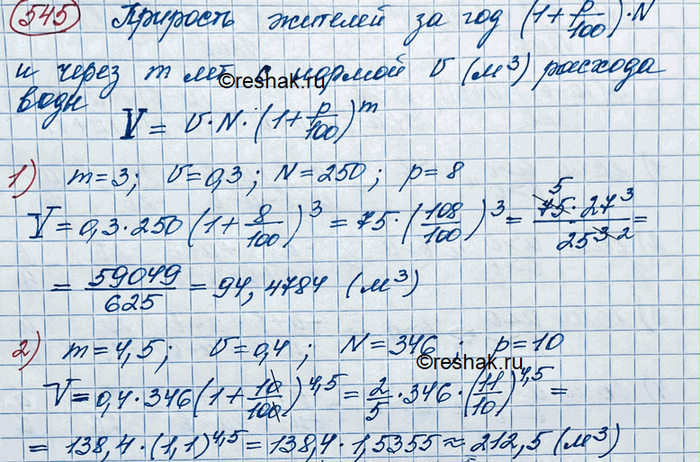 545 Прирость жителей за год (1+p/100)·N
и через m лет с нормой υ (м³) расхода
©reshak.ru
воды V = υ·N·(1+p/100)^m
1) m=3; υ=0,3; N=250; p=8
V=0,3·250(1+8/100)³=75·(108/100)³= 5 75·27³/25^3 2=
=59049/625=94,4784 (м³)
2) m=4,5; υ=0,4; N=346; p=10
©reshak.ru
V=0,4·346(1+10/100)^4,5=2/5·346·(11/10)^4,5=
=138,4·(1,1)^4,5=138,4·1,5355≈212,5(м³)